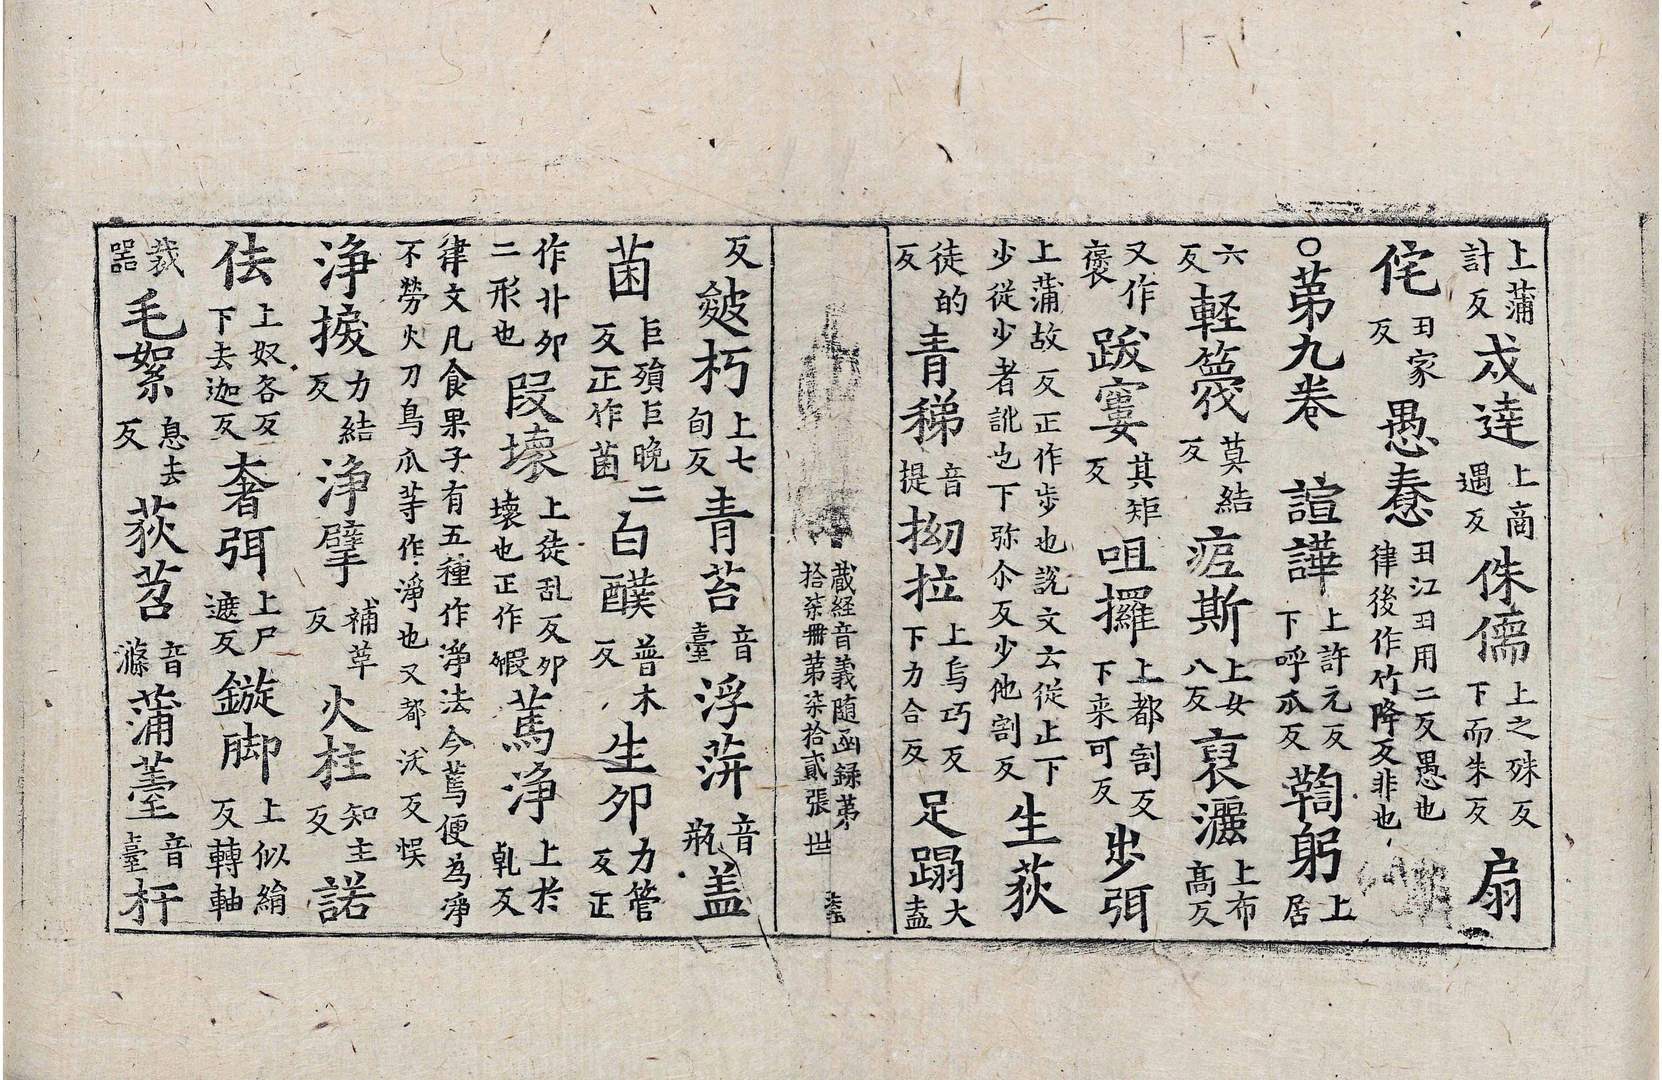 上蒲計反戍達上商遇反侏儒上之殊反下而朱反扇
侘丑家反愚惷丑江丑用二反愚也律後作竹降反非也
○苐九卷諠譁上許元反下呼瓜反鞫躬上居
六反軽篾莫結反痆斯上女八反裒灑上布高反
又作褒跋窶其矩反咀攞上都割反下来可反步弭
上蒲故反正作步也說文云從止下少從少者訛也下弥尒反少他割反生荻
徒的反青稊音提拗拉上烏巧反下力合反足蹋大盍
藏経音義随函録苐拾柒冊第柒拾貳張 世
反皴朽上七旬反青苔音臺浮蓱音瓶盖
菌巨殞巨晩二反正作菌白醭普木反生卵力管反正
作卝卵二形也段壞上徒乱反卵壞也正作毈蔫淨上於乹反
律文凡食果子有五種作淨法今蔫便為淨不勞火刀鳥爪等作淨也又都沃反悮
淨捩力結反淨擘補草反火柱知主反諾
佉上奴各反下去迦反奢弭上尸遮反鏇脚上似綸反轉軸
裁器毛絮息去反荻苕音滌蒲薹音臺杆